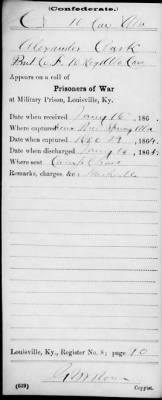 (Confederate.)
C 10 Cav Ala
Alexander Clark
Pvt Co. F. 10 Reg Ala Cav
Appears on a roll of
Prisoners of War
at Military Prison, Louisville, Ky.
Date when received Jany 16, 186 .
Where captured Pine Spring Ala
Date when captured Dec 29, 1864.
Date when discharged Jany 16, 1865.
Where sent Camp Chase
Remarks, charges, &c Nashville
Louisville, Ky., Register No. 8; page 90
(639) Copyist.